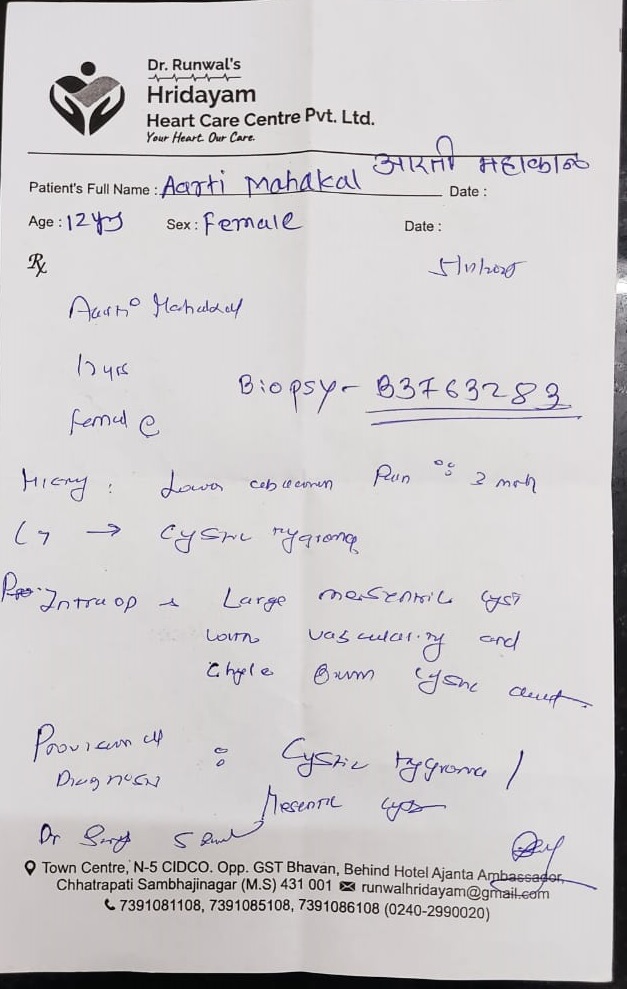 Dr. Runwal's
Hridayam
Heart Care Centre Pvt. Ltd.
Your Heart. Our Care.
आरती महाकाळ
Patient's Full Name : Aarti Mahakal Date :
Age : 12 yrs Sex : Female Date :
Rx
5/11/2025
Aarti Mahakal
12 yrs
Biopsy - B3763283
Female
History : Lower abdomen Pain 3
→ Cystic hygroma
Intraop → Large mesenteric cyst
with vascularity and
chyle from cystic
Provisional : Cystic hygroma /
Diagnosis
Mesenteric cyst
Dr
Town Centre, N-5 CIDCO. Opp. GST Bhavan, Behind Hotel Ajanta Ambassador,
Chhatrapati Sambhajinagar (M.S) 431 001 runwalhridayam@gmail.com
7391081108, 7391085108, 7391086108 (0240-2990020)